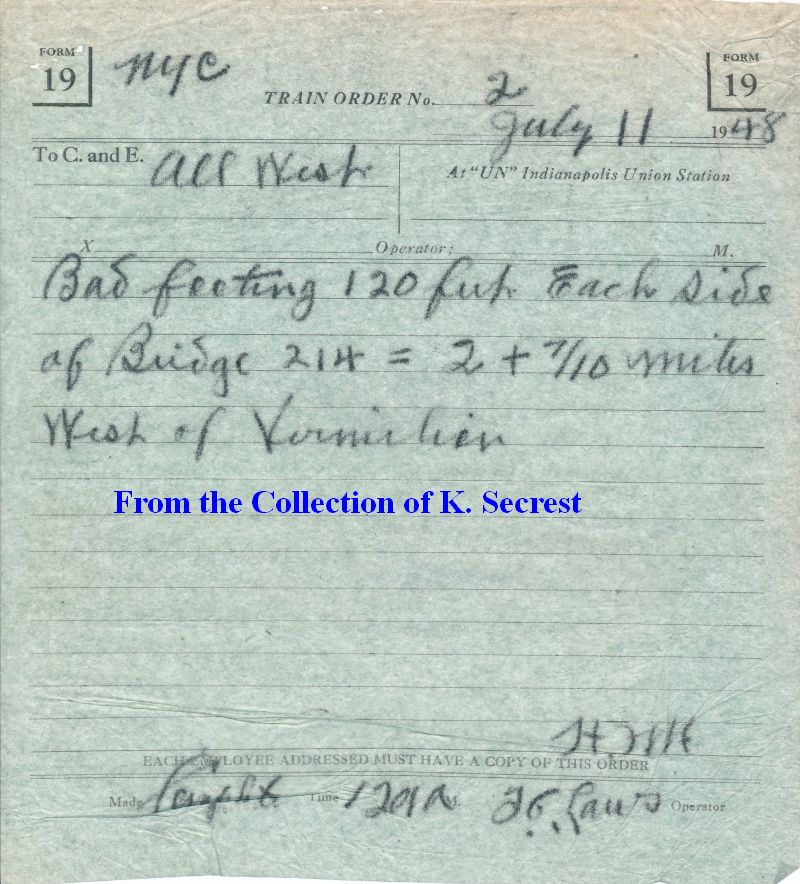 FORM 19 NYC FORM 19
TRAIN ORDER No. 2
July 11 1948
To C. and E. All West
At "UN" Indianapolis Union Station
X Operator; M.
Bad footing 120 feet Each side
of Bridge 214 = 2 + 7/10 miles
West of Vermilion
From the Collection of K. Secrest
EACH EMPLOYEE ADDRESSED MUST HAVE A COPY OF THIS ORDER
Made Time 129A M. Laws Operator